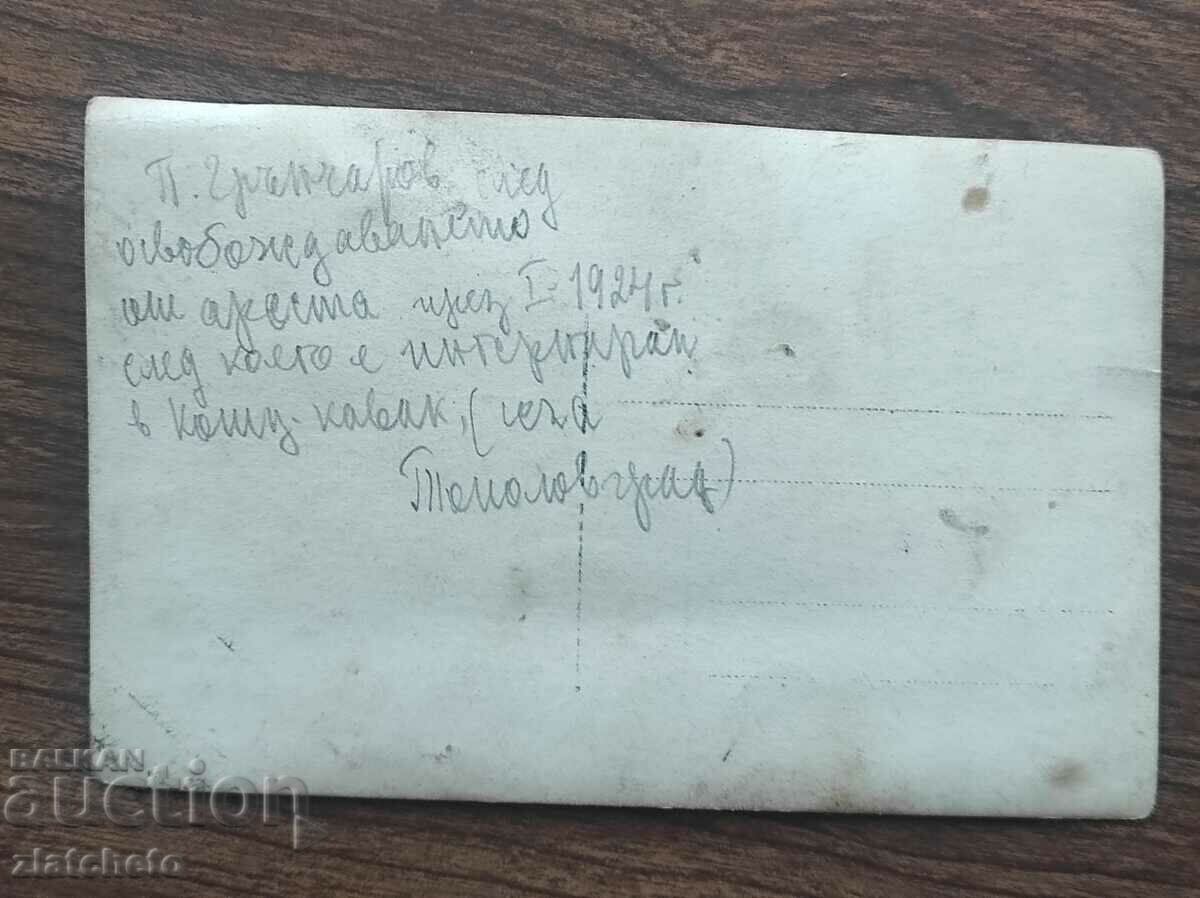 П. Грънчаров след
освобождаването
от ареста през I 1924 г.
след което е интерниран
в Кошу-кавак, (сега
Тополовград)
BALKAN
auction
zlatcheto